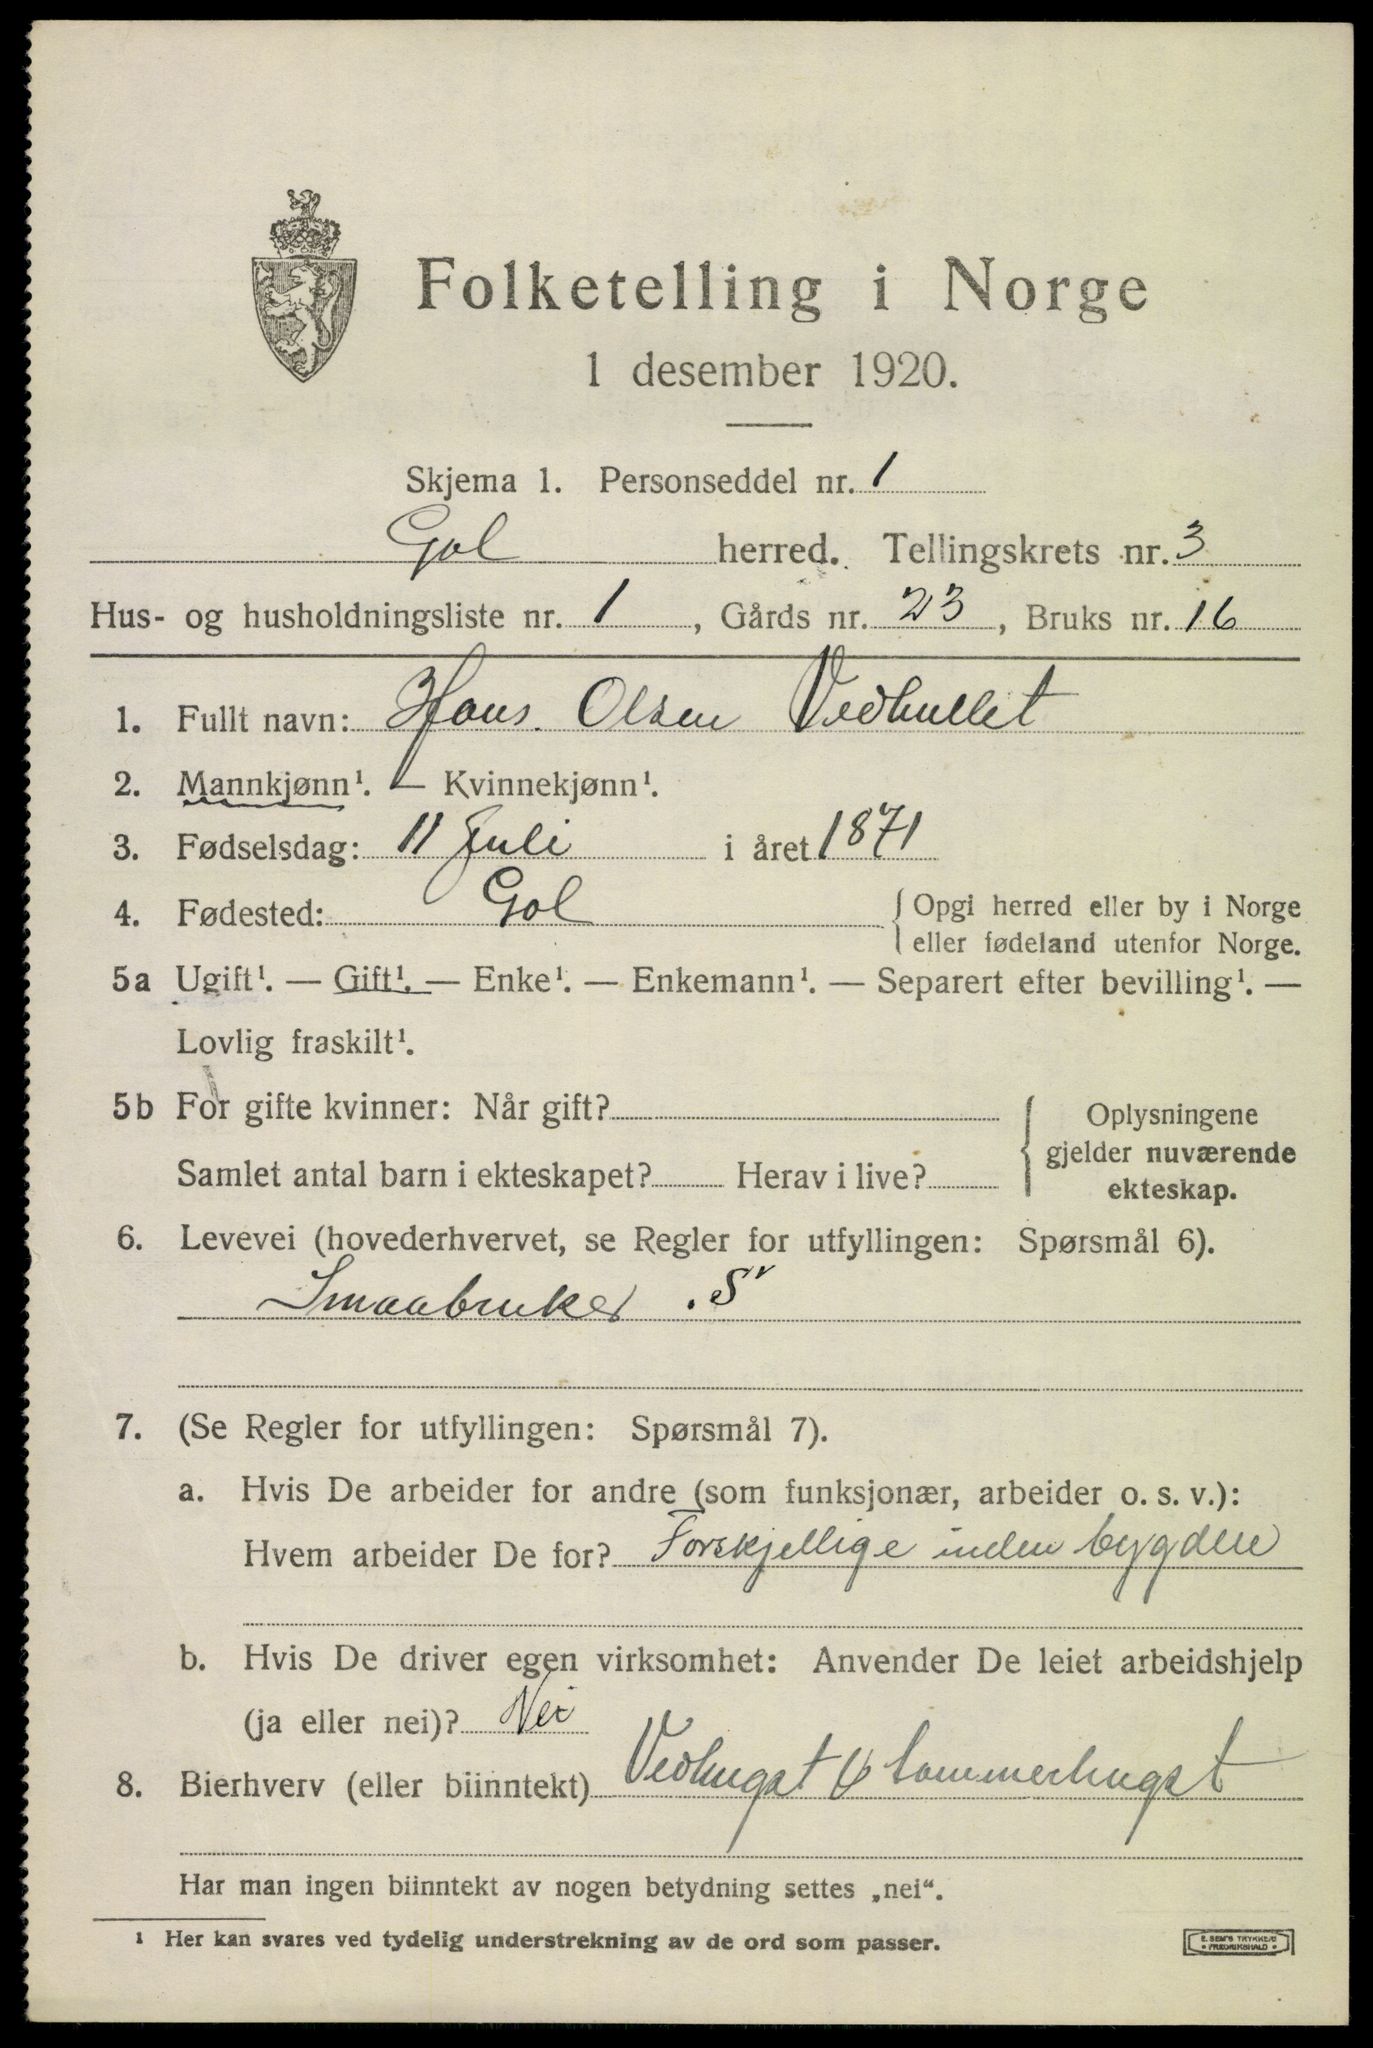 Folketelling i Norge
1 desember 1920.
Skjema 1. Personseddel nr. 1
Gol herred. Tellingskrets nr. 3
Hus- og husholdningsliste nr. 1, Gårds nr. 23, Bruks nr. 16
1. Fullt navn: Hans Olsen Vedhullet
2. Mannkjønn¹. — Kvinnekjønn¹.
3. Fødselsdag: 11 Juli i året 1871
4. Fødested: Gol { Opgi herred eller by i Norge
eller fødeland utenfor Norge.
5a Ugift¹. — Gift¹. — Enke¹. — Enkemann¹. — Separert efter bevilling¹. —
Lovlig fraskilt¹.
5b For gifte kvinner: Når gift? { Oplysningene
gjelder nuværende
Samlet antal barn i ekteskapet? Herav i live?
ekteskap.
6. Levevei (hovederhvervet, se Regler for utfyllingen: Spørsmål 6).
Smaabruker . S
7. (Se Regler for utfyllingen: Spørsmål 7).
a. Hvis De arbeider for andre (som funksjonær, arbeider o. s. v.):
Hvem arbeider De for? Forskjellige inden bygden
b. Hvis De driver egen virksomhet: Anvender De leiet arbeidshjelp
(ja eller nei)? Nei
8. Bierhverv (eller biinntekt) Vedhugst & tømmerhugst
Har man ingen biinntekt av nogen betydning settes „nei“.
¹ Her kan svares ved tydelig understrekning av de ord som passer.
E. SEM'S TRYKKERI
• FREDRIKSHALD •